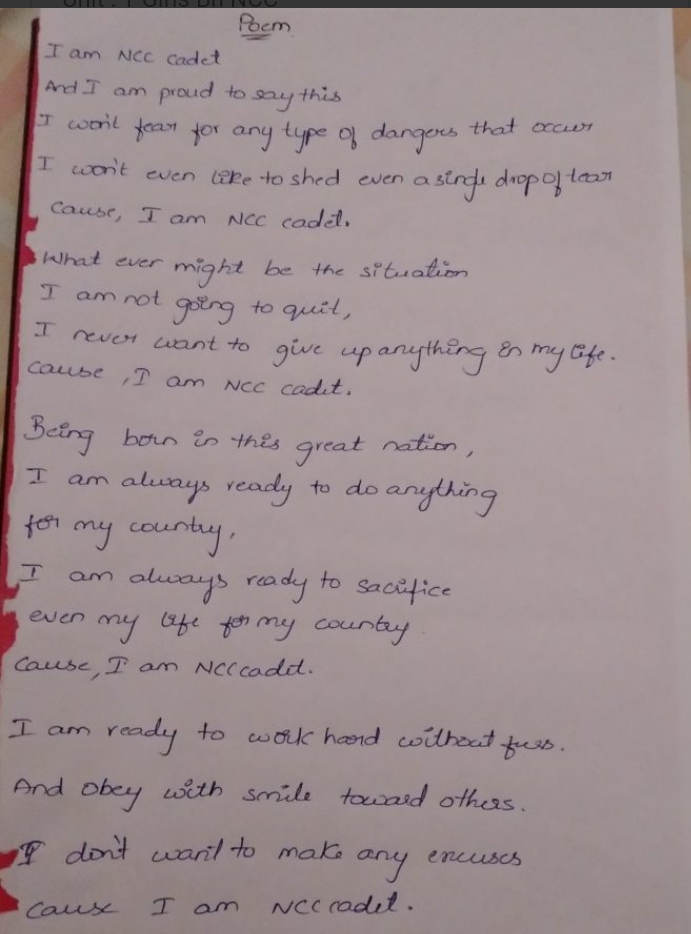 Unit : 1 Girls Bn NCC
Poem
I am NCC cadet
And I am proud to say this
I won't fear for any type of dangers that occur
I won't even like to shed even a single drop of tear
Cause, I am NCC cadet.
What ever might be the situation
I am not going to quit,
I never want to give up anything in my life.
cause, I am NCC cadet.
Being born in this great nation,
I am always ready to do anything
for my country,
I am always ready to sacrifice
even my life for my country.
Cause, I am NCC cadet.
I am ready to work hard without fuss.
And obey with smile toward others.
I don't want to make any excuses
cause I am NCC cadet.